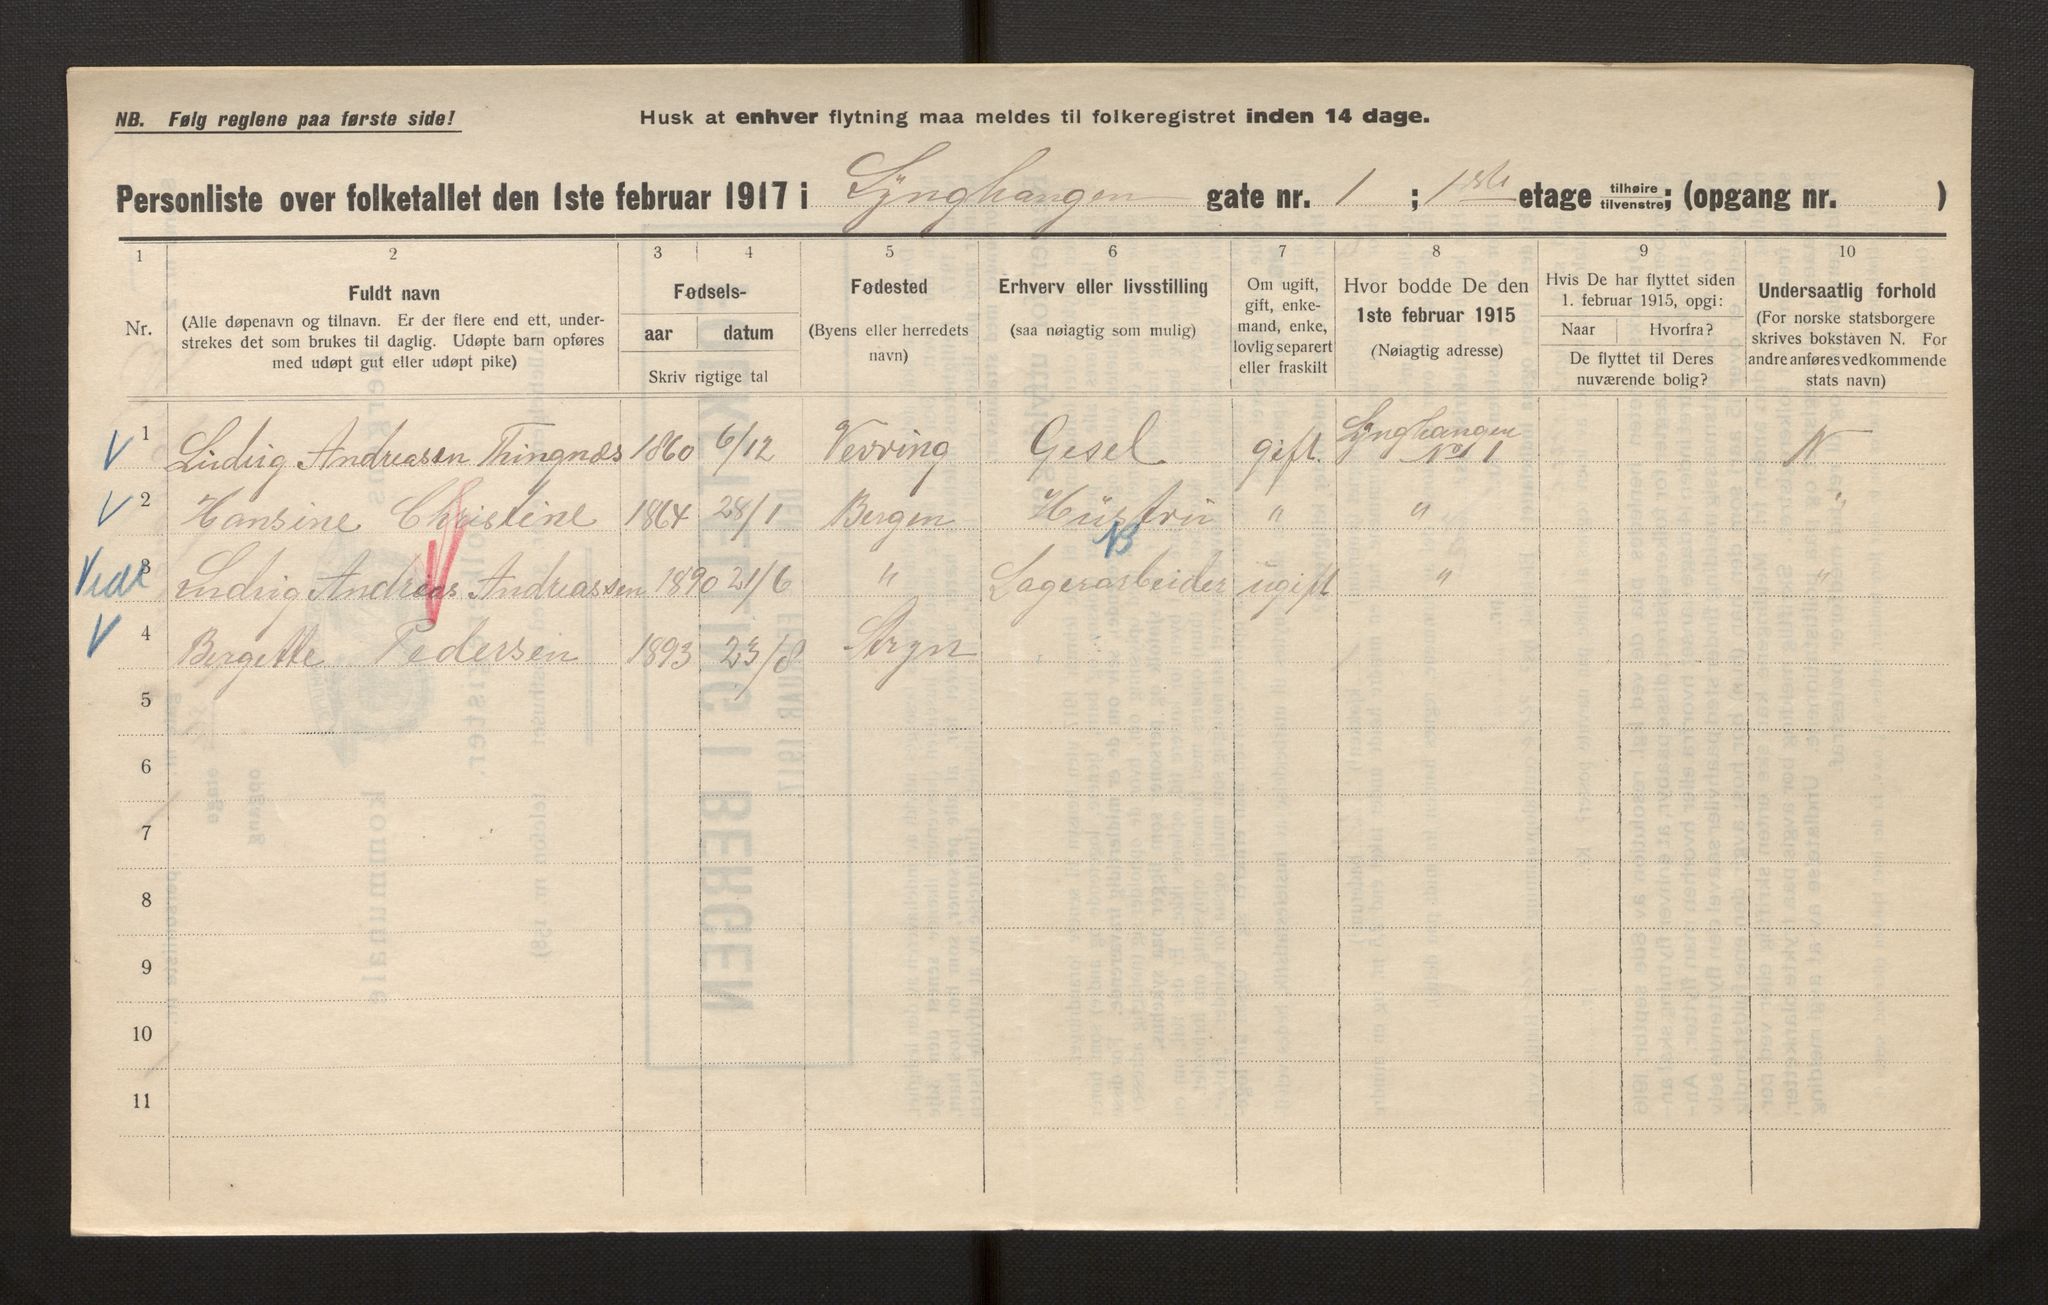 NB. Følg reglene paa første side!
Husk at enhver flytning maa meldes til folkeregistret inden 14 dage.
Personliste over folketallet den 1ste februar 1917 i Lÿnghaugen gate nr. 1 ; 1ste etage tilhøire tilvenstre ; (opgang nr. )
1 2 3 4 5 6 7 8 9 10
Nr.
Fuldt navn
(Alle døpenavn og tilnavn. Er der flere end ett, under-
strekes det som brukes til daglig. Udøpte barn opføres
med udøpt gut eller udøpt pike)
Fødsels-
aar datum
Skriv rigtige tal
Fødested
(Byens eller herredets
navn)
Erhverv eller livsstilling
(saa nøiagtig som mulig)
Om ugift,
gift, enke-
mand, enke,
lovlig separert
eller fraskilt
Hvor bodde De den
1ste februar 1915
(Nøiagtig adresse)
Hvis De har flyttet siden
1. februar 1915, opgi:
Naar Hvorfra?
De flyttet til Deres
nuværende bolig?
Undersaatlig forhold
(For norske statsborgere
skrives bokstaven N. For
andre anføres vedkommende
stats navn)
V 1 Ludvig Andreasen Thingnæs 1860 6/12 Vevring Gesel gift. Lÿnghaugen No 1 N
V 2 Hansine Christine 1864 28/1 Bergen Hüstrü " " "
3 Ludvig Andreas Andreassen 1890 21/6 " Lagerarbeider ugift " "
V 4 Bergette Pedersen 1893 23/8 Stryn
5
6
7
8
9
10
11